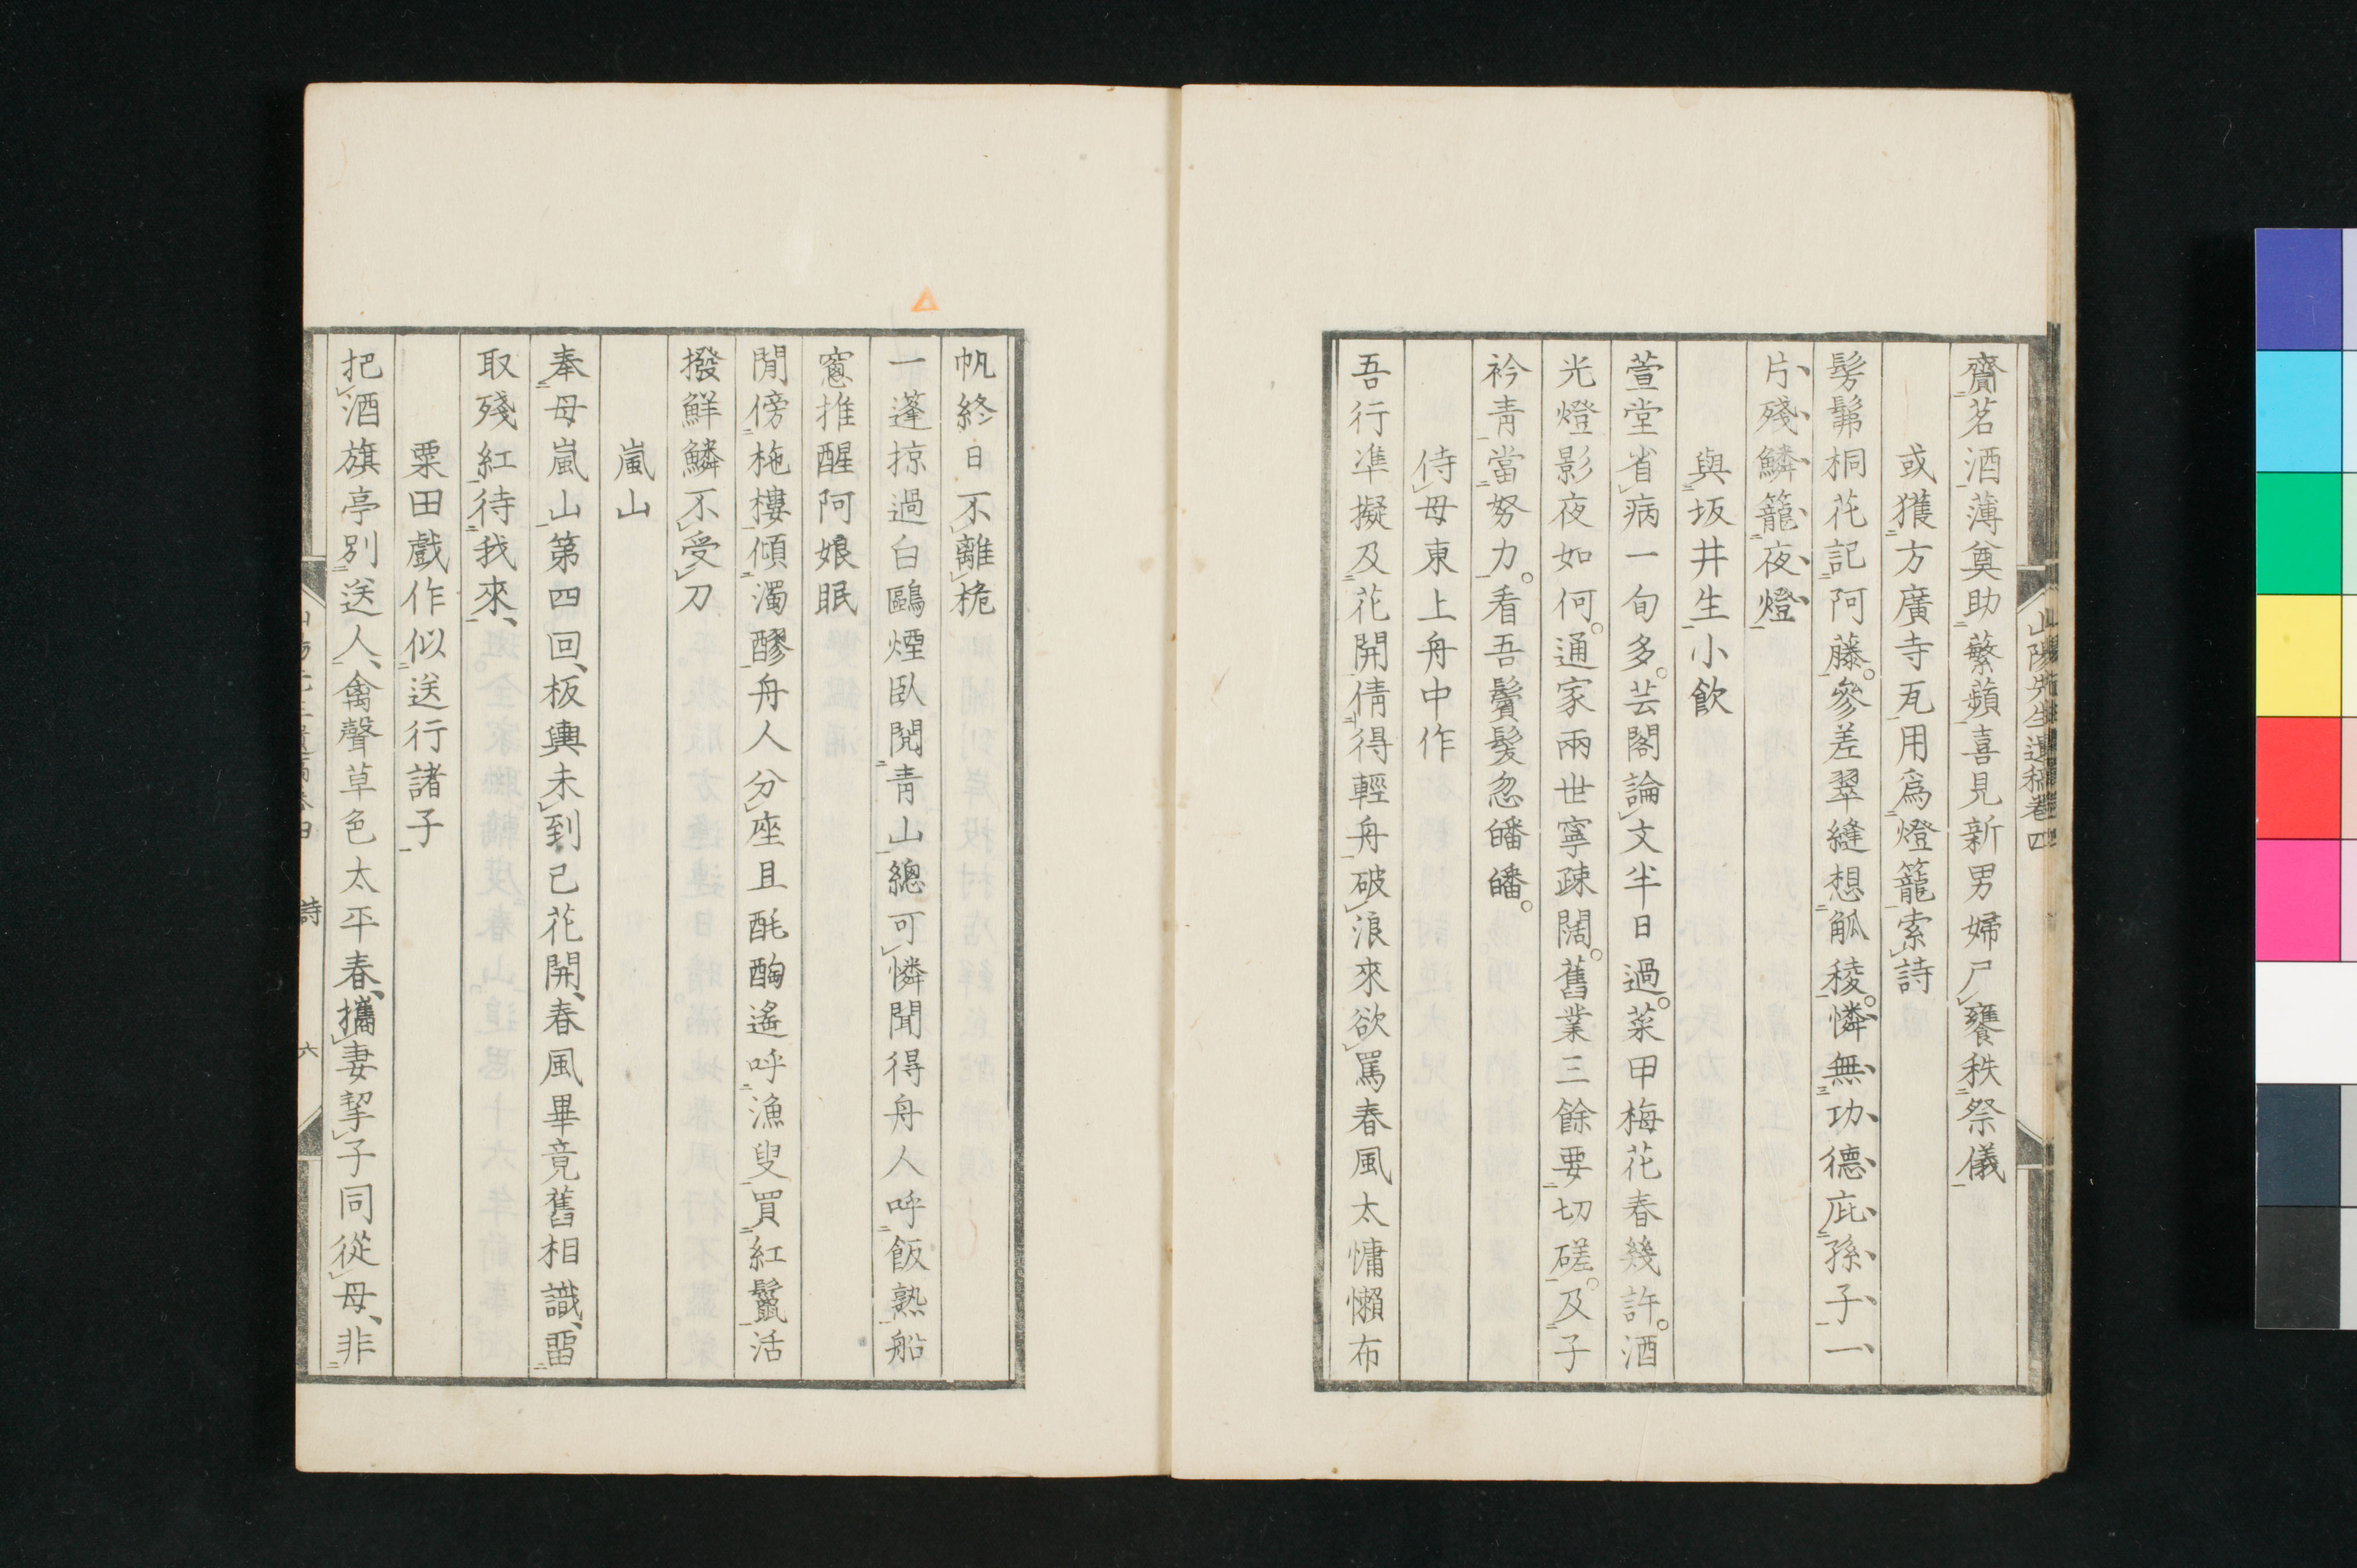 山陽先生遺稿卷四
齎茗酒薄奠助蘩蘋喜見新男婦尸饔秩祭儀
或獲方廣寺瓦用爲燈籠索詩
髣髴桐花記阿藤參差翠縫想觚稜憐無功德庇孫子一
片殘鱗籠夜燈
與坂井生小飲
萱堂省病一旬多芸閣論文半日過菜甲梅花春幾許酒
光燈影夜如何通家兩世寧疎闊舊業三餘要切磋及子
衿青當努力看吾鬢髮忽皤皤
侍母東上舟中作
吾行準擬及花開倩得輕舟破浪來欲罵春風太慵懶布
帆終日不離桅
一蓬掠過白鷗煙臥閱青山總可憐聞得舟人呼飯熟船
窻推醒阿娘眠
閒傍柂樓傾濁醪舟人分座且酕醄遙呼漁叟買紅鬣活
撥鮮鱗不受刀
嵐山
奉母嵐山第四回板輿未到已花開春風畢竟舊相識畱
取殘紅待我來
粟田戲作似送行諸子
把酒旗亭別送人禽聲草色太平春攜妻挈子同從母非
詩
六